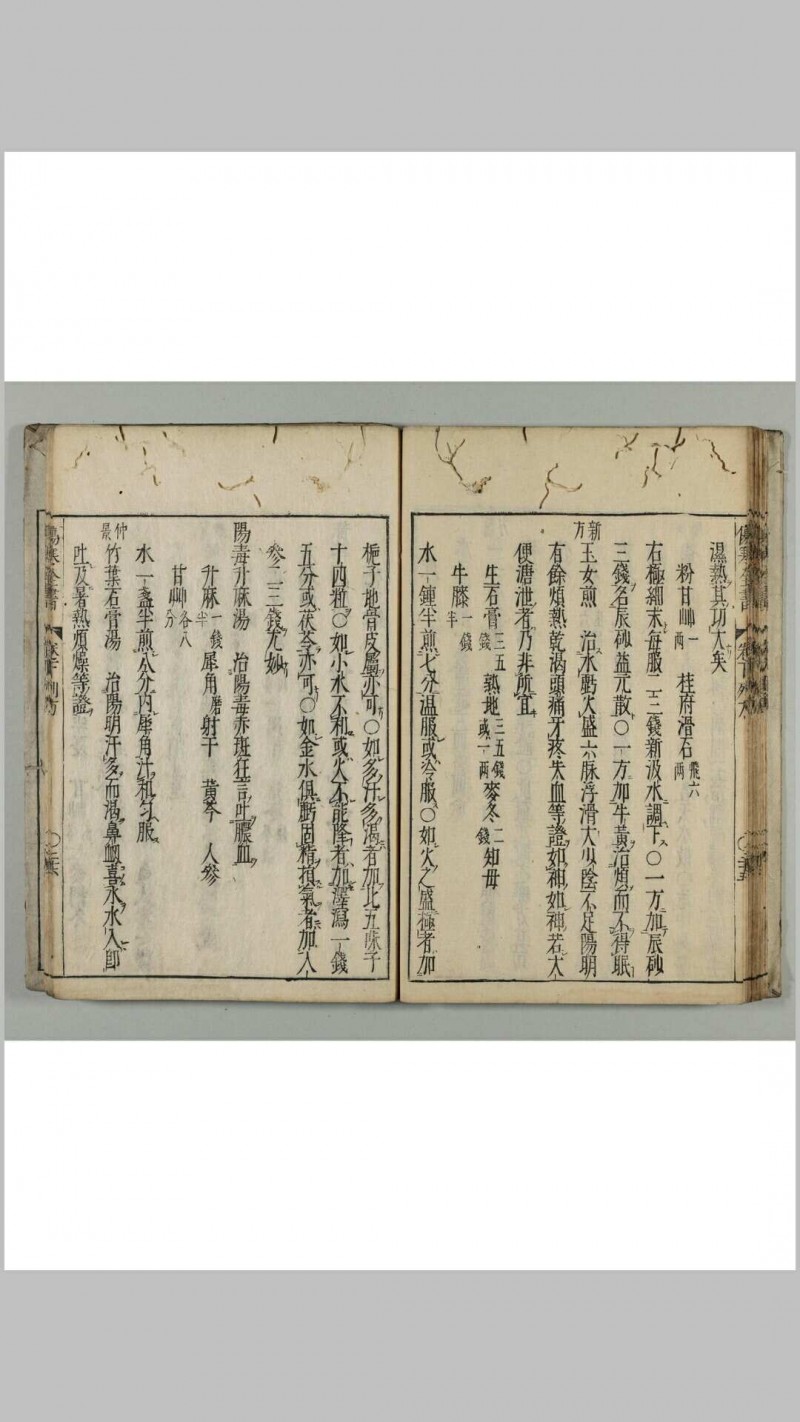 濕熱其功大矣
粉甘艸一兩 桂府滑石飛六兩
右極細末每服二三錢新汲水調下○一方加辰砂
三錢名辰砂益元散○一方加牛黃治煩而不得眠
新方玉女煎 治水虧火盛六脉浮滑大少陰不足陽明
有餘煩熱乾渴頭痛牙疼失血等證如神如神若大
便溏泄者乃非所宜
生石膏三五錢 熟地三五錢或一兩 麥冬二錢 知母
牛膝一錢半
水一鍾半煎七分温服或冷服○如火之盛極者加
梔子地骨皮屬亦可○如多汗多渴者加北五味子
十四粒○如小水不利或火不能降者加澤瀉一錢
五分或茯苓亦可○如金水俱虧因精損氣者加人
參二三錢尤妙
陽毒升麻湯 治陽毒赤斑狂言吐膿血
升麻一錢半 犀角磨 射干 黃芩 人參
甘艸各八分
水一盞半煎八分內犀角汁和勻服
仲景竹葉石膏湯 治陽明汗多而渴鼻衄喜水水入卽
吐及暑熱煩燥等證